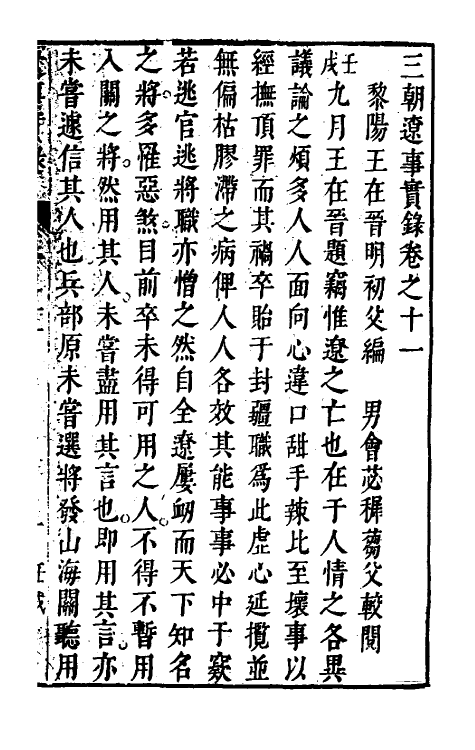 三朝遼事實錄卷之十一
黎陽王在晉明初父編　男會苾穉蒭父較閱
壬戌九月王在晉題竊惟遼之亡也在于人情之各異
議論之煩多人人面向心違口甜手辣比至壞事以
經撫頂罪而其禍卒貽于封疆職爲此虛心延攬並
無偏枯膠滯之病俾人人各效其能事事必中于窾
若逃官逃將職亦憎之然自全遼屢衂而天下知名
之將多罹惡煞目前卒未得可用之人不得不暫用
入關之將然用其人未嘗盡用其言也即用其言亦
未嘗遽信其人也兵部原未嘗選將發山海關聽用